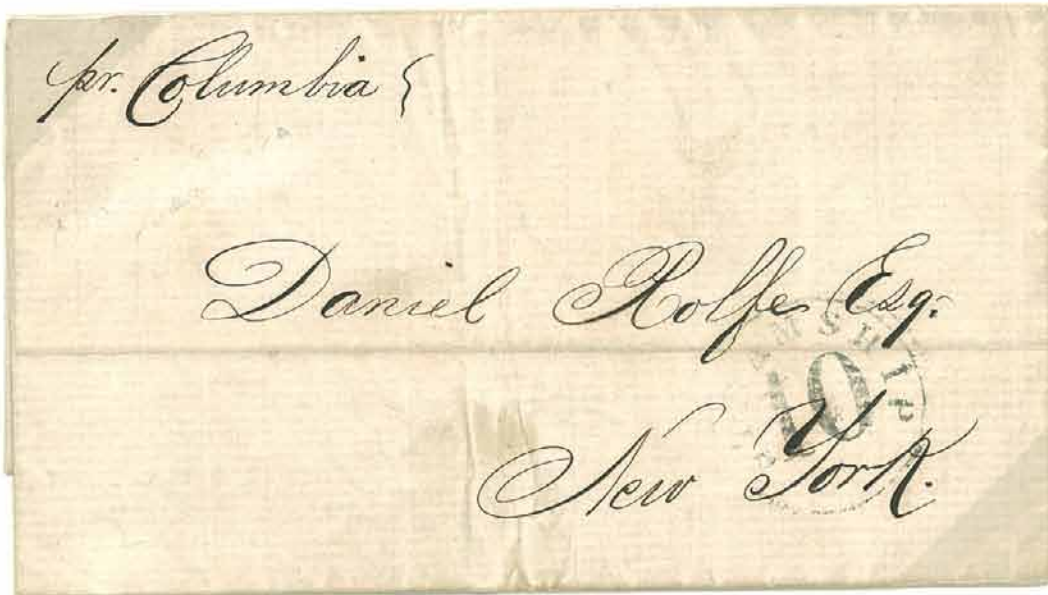 pr. Columbia
Daniel Rolfe Esq.
STEAMSHIP
10
New York.